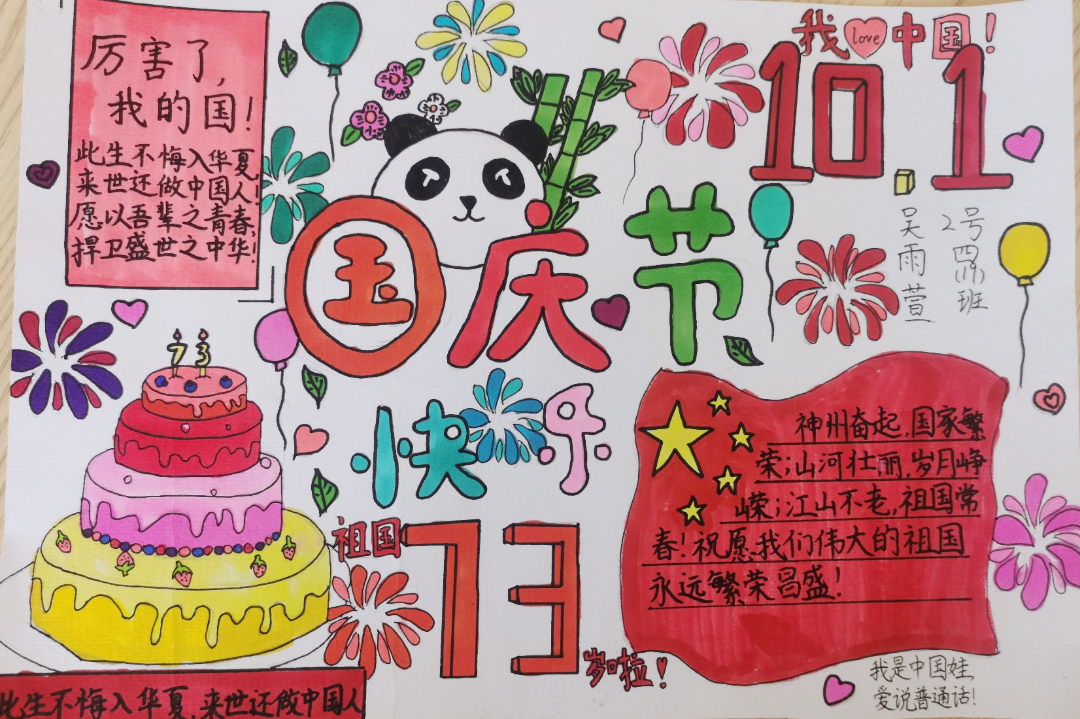 厉害了,
我的国!
此生不悔入华夏
来世还做中国人!
愿以吾辈之青春,
捍卫盛世之中华!
我love中国!
10.1
吴雨萱
2号
四班
国庆节
快乐
73
祖国
73
岁啦!
神州奋起,国家繁
荣;山河壮丽,岁月峥
嵘;江山不老,祖国常
春!祝愿我们伟大的祖国
永远繁荣昌盛!
我是中国娃
爱说普通话!
此生不悔入华夏,来世还做中国人